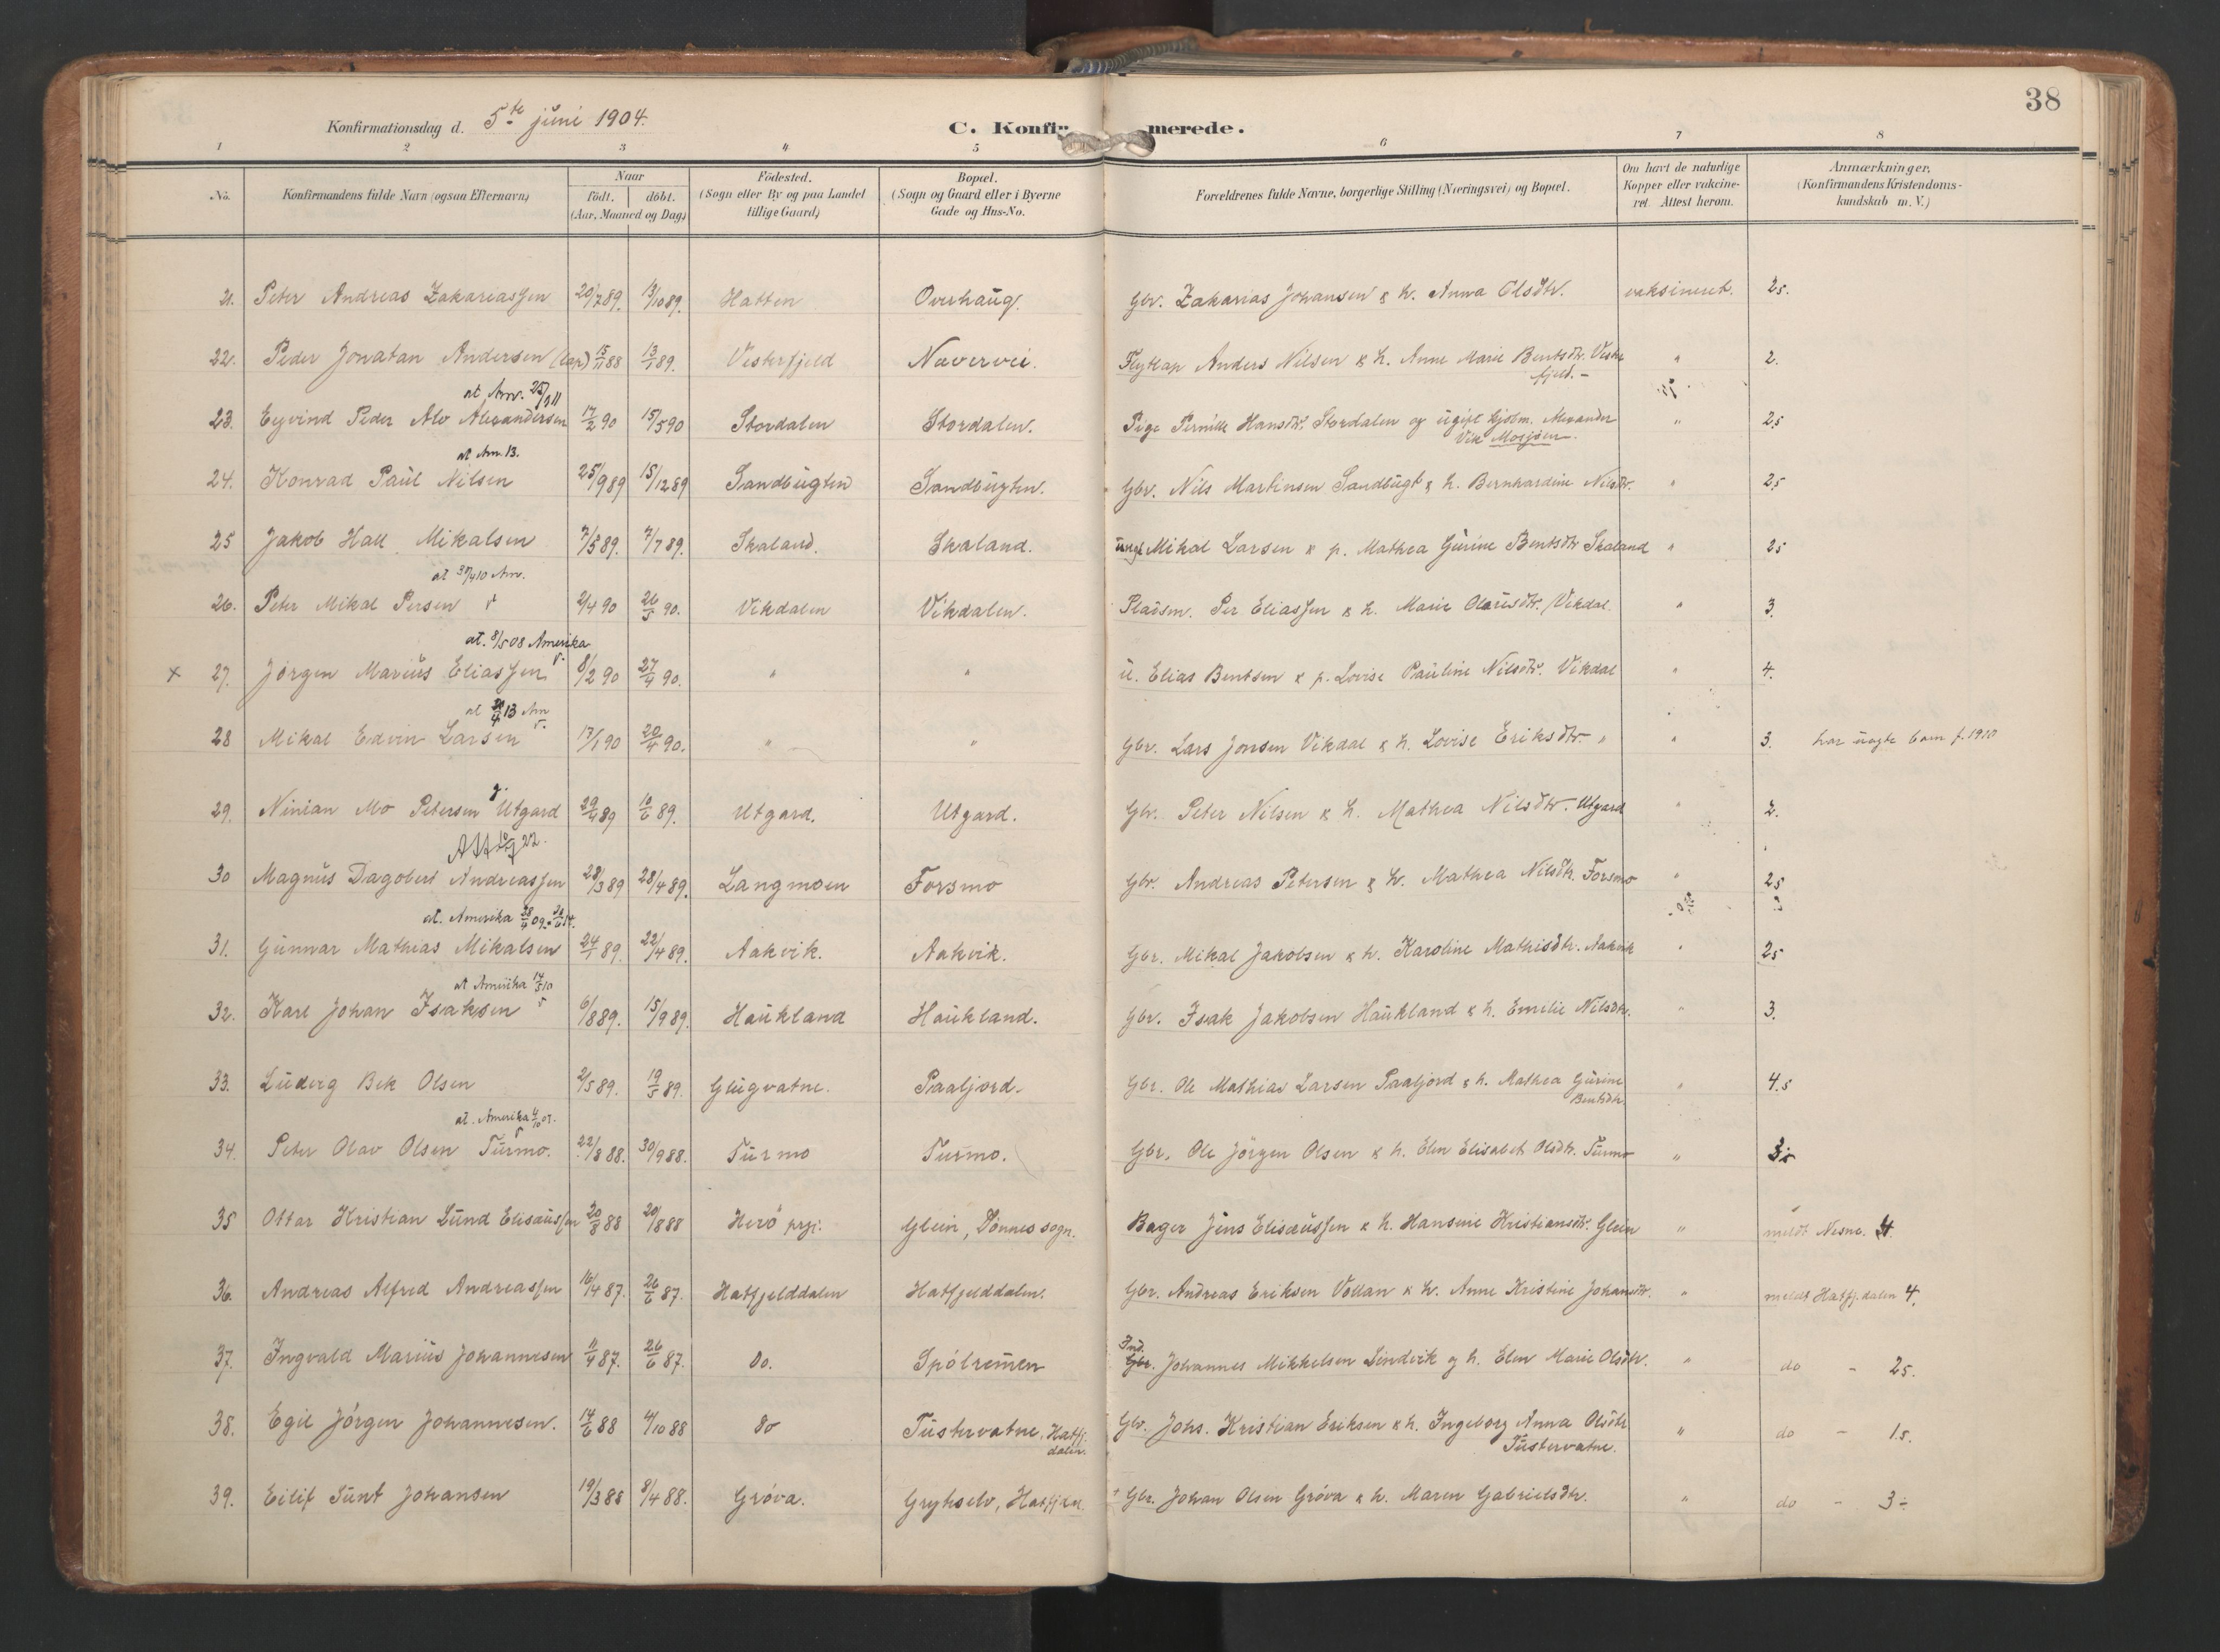 38
Konfirmationsdag d. 5te juni 1904.
C. Konfir merede.
1 2 3 4 5 6 7 8
No. Konfirmandens fulde Navn (ogsaa Efternavn) Naar födt. döbt. (Aar, Maaned og Dag) Födested. (Sogn eller By og paa Landet tillige Gaard) Bopæl. (Sogn og Gaard eller i Byerne Gade og Hus-No. Forældrenes fulde Navne, borgerlige Stilling (Næringsvei) og Bopæl. Om havt de naturlige Kopper eller vakcineret. Attest herom. Anmærkninger. (Konfirmandens Kristendomskundskab m. V.)
21. Peter Andreas Zakariassen 20/7 89. 13/10 89. Hatten Overhaug. Gbr. Zakarias Johansen & h. Anna Olsdtr. vaksineret. 2s.
22. Peder Jonatan Andersen (lap) 15/11 88 13/1 89. Vesterfjeld Navervei. Flytlap Anders Nilsen & h. Anne Marie Bentsdtr. Vester " 2.
fjeld. -
at Am. 25/3 11
23. Eyvind Peder Alv Alexandersen 17/2 90 15/5 90 Stordalen Stordalen. Pige Pernille Hansdtr. Stordalen og ugift Alexander " 2s
Vik Mosjøen.
at Am. 13.
24. Konrad Paul Nilsen 25/9 89 15/12 89 Sandbugten Sandbugten. Gbr. Nils Martinsen Sandbugt & h. Bernhardine Nilsdtr. " 2s
25 Jakob Hall Mikalsen 7/5 89. 7/7 89. Skaland. Skaland. ungk Mikal Larsen & p. Mathea Gurine Bentsdtr Skaland " 2s
at 30/4 10 Am.
26. Peter Mikal Persen 2/4 90 26/5 90. Vikdalen Vikdalen. Pladsm. Per Eliassen & h. Marie Olausdtr. Vikdal. " 3.
at. 8/5 08 Amerika
x 27. Jørgen Marius Eliassen 8/2 90 27/4 90. " " u. Elias Bentsen & p. Lovise Pauline Nilsdtr. Vikdal " 4.
at 4 13 Am
28 Mikal Edvin Larsen 17/1 90 20/4 90. " " Gbr. Lars Jonsen Vikdal & h. Lovise Eriksdtr. " " 3. har uegte barn f. 1910
29. Ninian Mo Petersen Utgard 29/4 89 10/6 89. Utgard. Utgard. Gbr. Peter Nilsen & h. Mathea Nilsdtr. Utgard " 2.
Att 22.
30 Magnus Dagobert Andreassen 28/3 89 28/4 89. Langmoen Forsmo Gbr. Andreas Petersen & h. Mathea Nilsdtr. Forsmo " 2s
at. Amerika 28/4 09 -
31. Gunnar Mathias Mikalsen 24/1 89. 22/4 89. Aakvik. Aakvik. Gbr. Mikal Jakobsen & h. Karoline Mathisdtr. Aakvik " 2s
at Amerika 14/5 10
32. Karl Johan Isaksen 6/8 89. 15/9 89. Haukland Haukland. Gbr. Isak Jakobsen Haukland & h. Emelie Nilsdtr. " 3.
33. Ludvig Bek Olsen 2/5 89. 19/5 89. Glugvatne. Paaljord. Gbr. Ole Mathias Larsen Paaljord & h. Mathea Gurine " 4.s
Bentsdtr.
at. Amerika 4/10 07.
34. Peter Olav Olsen Turmo. 22/8 88. 30/9 88. Turmo Turmo. Gbr. Ole Jørgen Olsen & h. Elen Elisabet Olsdtr. Turmo "
35 Ottar Kristian Lund Elisæussen 20/8 88 Herö prgj. Glein, Dönnes sogn. Bager Jens Elisæussen & h. Hansine Kristiansdtr. Glein " meldt Nesne. 4.
36. Andreas Alfred Andreassen 16/4 87. 26/6 87. Hatfjelddalen Hatfjelddalen. Gbr. Andreas Eriksen Vollan & h. Anne Kristine Johansdtr. " meldt Hatfj.dalen 4.
37. Ingvald Marius Johannesen 11/4 87. 26/6 87. Do. Spölremen Ind. Gbr. Johannes Mikkelsen Lindvik og h. Elen Marie Olsdtr. " do - 2s.
38. Egil Jörgen Johannesen. 14/6 88 4/10 88 do Tustervatne, Hatfj. dalen. Gbr. Johs. Kristian Eriksen & h. Ingeborg Anna Olsdtr " do - 1s.
Tustervatne.
39. Eilif Sunt Johansen 19/3 88 8/4 88. Gröva. Hatfjdal Gbr. Johan Olsen Gröva & h. Maren Gabrielsdtr. " do - 3÷